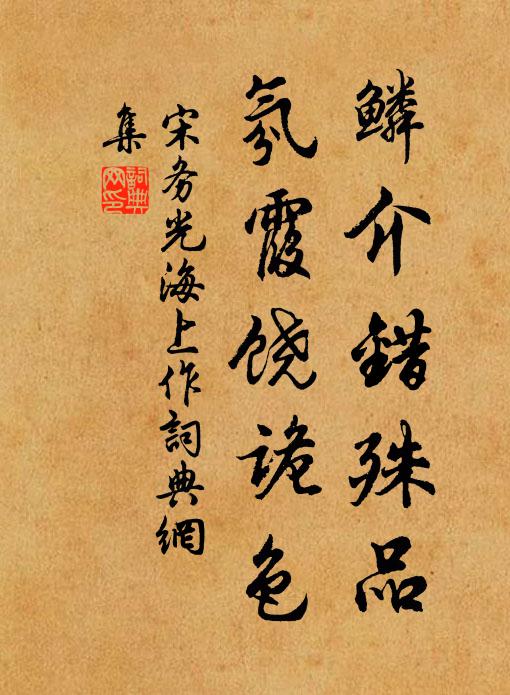 鱗介錯殊品
氛霞饶詭色
宋务光海上作詞典網
集
詞典
网印